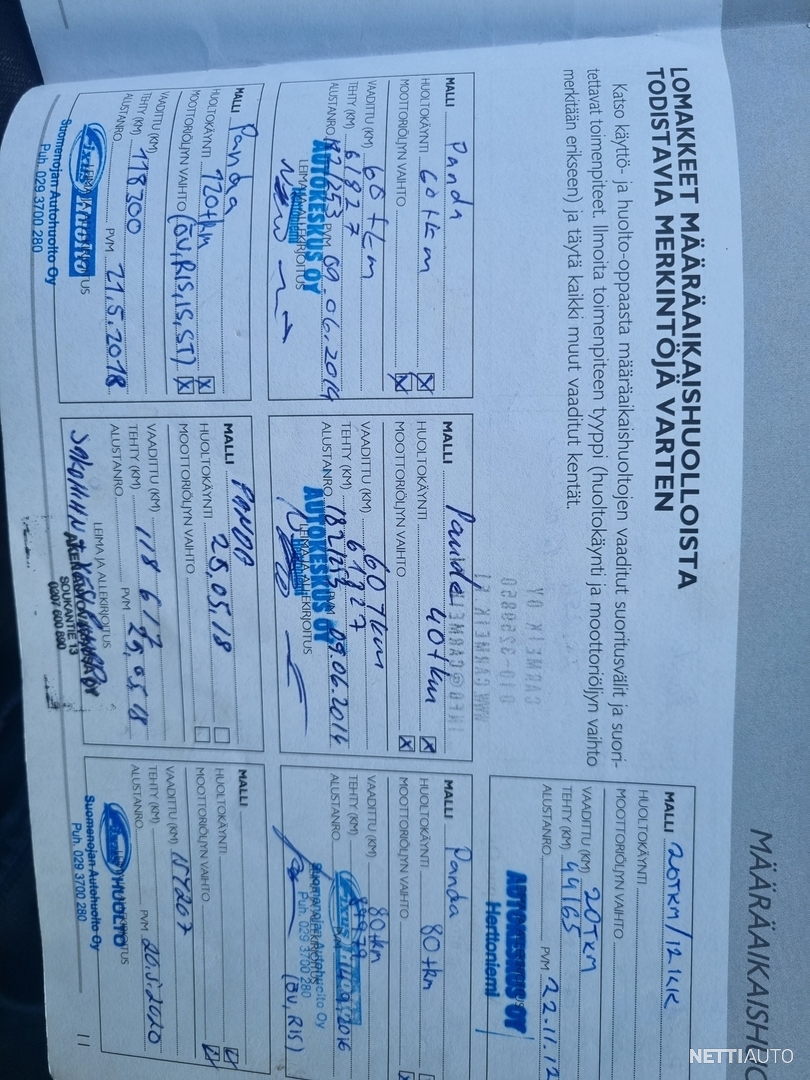 MÄÄRÄAIKAISHUO
LOMAKKEET MÄÄRÄAIKAISHUOLLOISTA
TODISTAVIA MERKINTÖJÄ VARTEN
Katso käyttö- ja huolto-oppaasta määräaikaishuoltojen vaaditut suoritusvälit ja suori-
tettavat toimenpiteet. Ilmoita toimenpiteen tyyppi (huoltokäynti ja moottoriöljyn vaihto
merkitään erikseen) ja täytä kaikki muut vaaditut kentät.
MALLI 20TKM/12KK
HUOLTOKÄYNTI
MOOTTORIÖLJYN VAIHTO
VAADITTU (KM) 20TKM
TEHTY (KM) 44165
ALUSTANRO PVM 22.11.12
AUTOKESKUS OY
Herttoniemi
MALLI Panda
HUOLTOKÄYNTI 60tkm
MOOTTORIÖLJYN VAIHTO
VAADITTU (KM) 60tkm
TEHTY (KM) 61827
ALUSTANRO 182/253 PVM 09.06.2014
LEIMA JA ALLEKIRJOITUS
AUTOKESKUS OY
MALLI Panda
HUOLTOKÄYNTI 40tkm
MOOTTORIÖLJYN VAIHTO
VAADITTU (KM) 60tkm
TEHTY (KM) 61827
ALUSTANRO 182/253 PVM 09.06.2014
LEIMA JA ALLEKIRJOITUS
AUTOKESKUS OY
MALLI Panda
HUOLTOKÄYNTI 80tkm
MOOTTORIÖLJYN VAIHTO
VAADITTU (KM) 80tkm
TEHTY (KM)
ALUSTANRO
Fixus
Suomenojan Autohuolto Oy
Puh. 029 3700 280
(ÖV, RIS)
MALLI Panda
HUOLTOKÄYNTI 120tkm
MOOTTORIÖLJYN VAIHTO (ÖV,RIS,IS,ST)
VAADITTU (KM)
TEHTY (KM) 118300
ALUSTANRO PVM 21.5.2018
Fixus HUOLTO
Suomenojan Autohuolto Oy
Puh. 029 3700 280
MALLI PANDA
HUOLTOKÄYNTI 25.05.18
MOOTTORIÖLJYN VAIHTO
VAADITTU (KM)
TEHTY (KM) 118617
ALUSTANRO PVM 25.05.18
LEIMA JA ALLEKIRJOITUS
SOUKANTIE 13
0207 600 890
MALLI
HUOLTOKÄYNTI
MOOTTORIÖLJYN VAIHTO
VAADITTU (KM)
TEHTY (KM)
ALUSTANRO PVM 20.5.2020
Fixus HUOLTO
Suomenojan Autohuolto Oy
Puh. 029 3700 280
11
NETTIAUTO